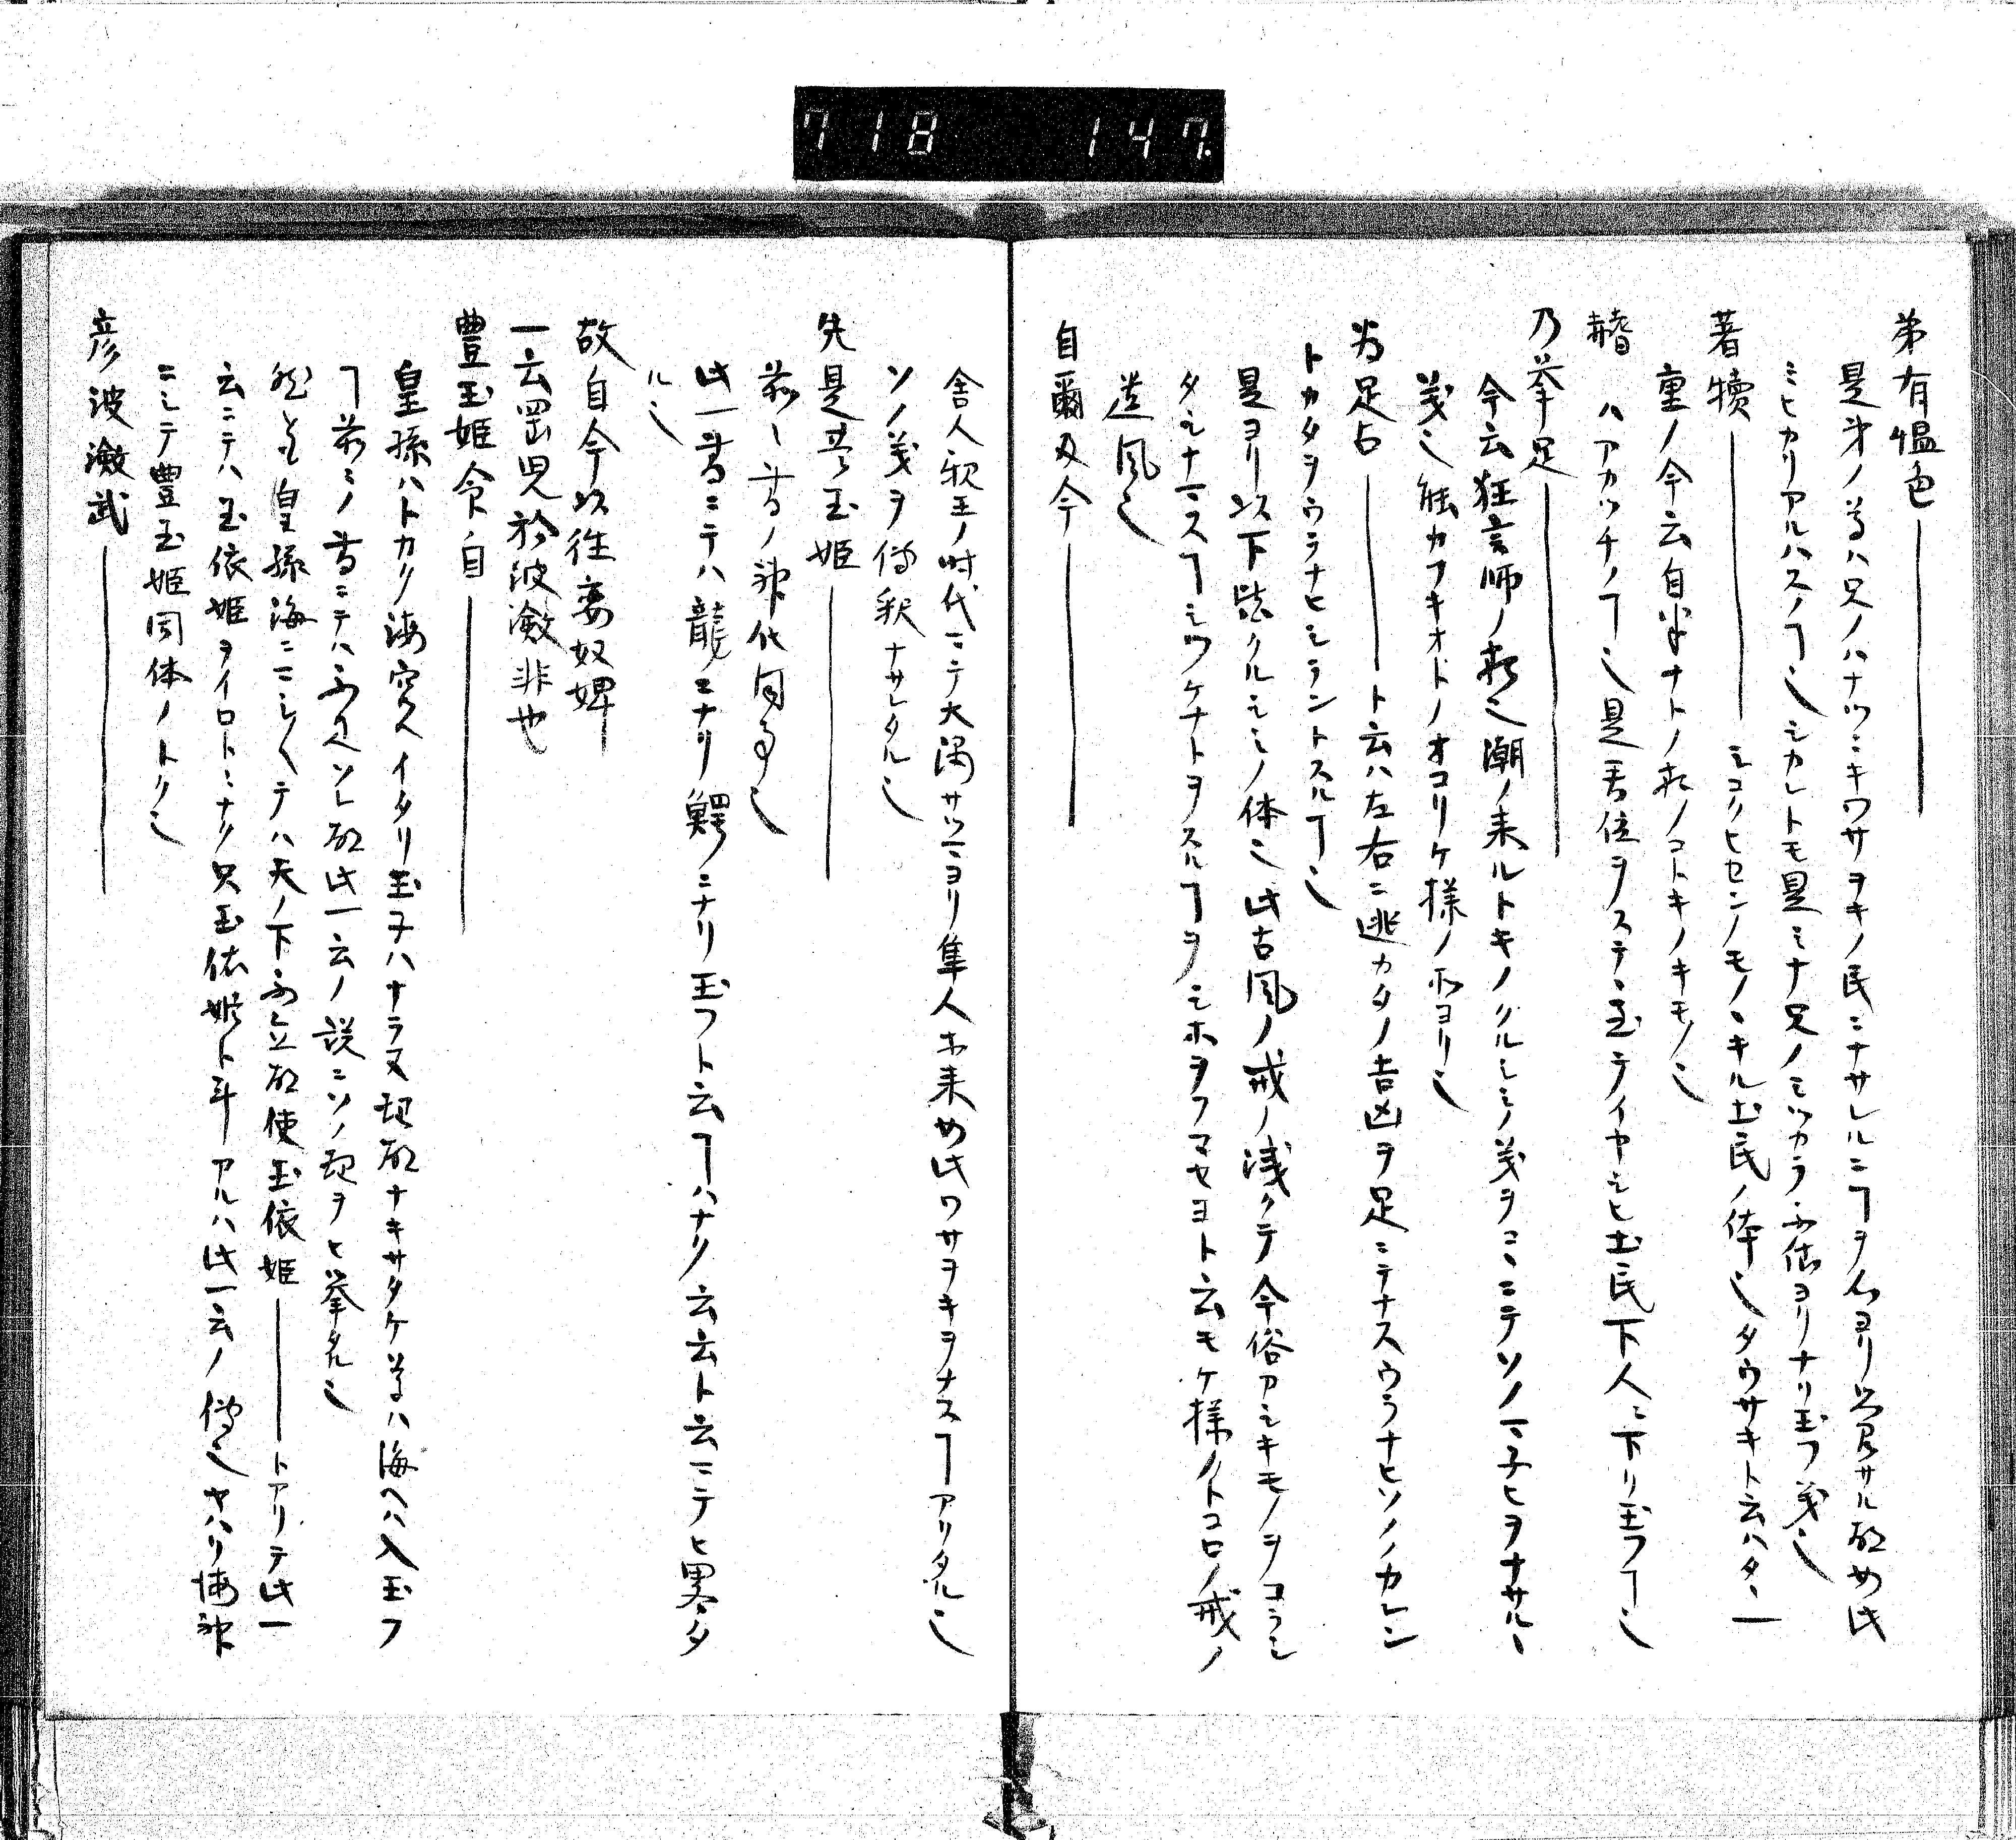 718 147.
弟有慍色
是弟ノ尊ハ兄ノハナツニキワサヲキノ民ニナサレルニヿヲ
ミヒカリアルハスノヿ也シカレトモ是ミナ兄ノミツカラ不徳ヨリナリ玉フ義也
著犢 シコリヒセンノモノヽキル土民ノ体也タウサキト云ハタヽ一
重ノ今云自半ナトノ
赭 ハアカツチノヿ也是吾位ヲステヽ至テイヤシヒ土民下人ニ下リ玉フヿ也
乃挙足
今云狂言師ノ 潮ノ来ルトキノクルシミノ義ヲミヽニテソノマ子ヒヲナサルヽ
義也 能カフキオドノオコリケ様ノ ヨリ也
為足占 ト云ハ左右ニ逃カタノ吉凶ヲ足ニテナスウラナヒソノノカレン
トカタヲウラナヒシラントスルヿ也
是ヨリ以下皆クルシミノ体也此古風ノ戒ノ浅クテ今俗アシキモノヲコラシ
タシナマスヿシツケナトヲスルヿヲシホヲフマセヨト云モケ様ノトコロノ戒ノ
遺風也
自爾及今
舎人親王ノ時代ニテ大隅サツマヨリ隼人 来 此ワサヲキヲナスヿアリタル也
ソノ義ヲ 釈ナサレタル也
先是豊玉姫
前ノ書ノ神代 同事也
此一書ニテハ龍ニナリ鰐ニナリ玉フト云ヿハナク云云ト云ニテヒ畧タ
ル也
故自今以往妾奴婢
一云置児於波瀲非也
豊玉姫命自
皇孫ハトカク海宮ヘイタリ玉子ハナラヌ 故ナキサタケ尊ハ海ヘハ入玉フ
ヿ前ミノ書ニテハ不見ソレ故此一云ノ説ニソノ ヲヒ挙タル也
然トモ皇孫海ニマシ〳〵テハ天ノ下不立故使玉依姫 トアリテ此一
云ニテハ玉依姫ヲイロトミナク只玉依姫ト斗アルハ此一云ノ 也ヤハリ海神
ニシテ豊玉姫同体ノトク也
彦波瀲武